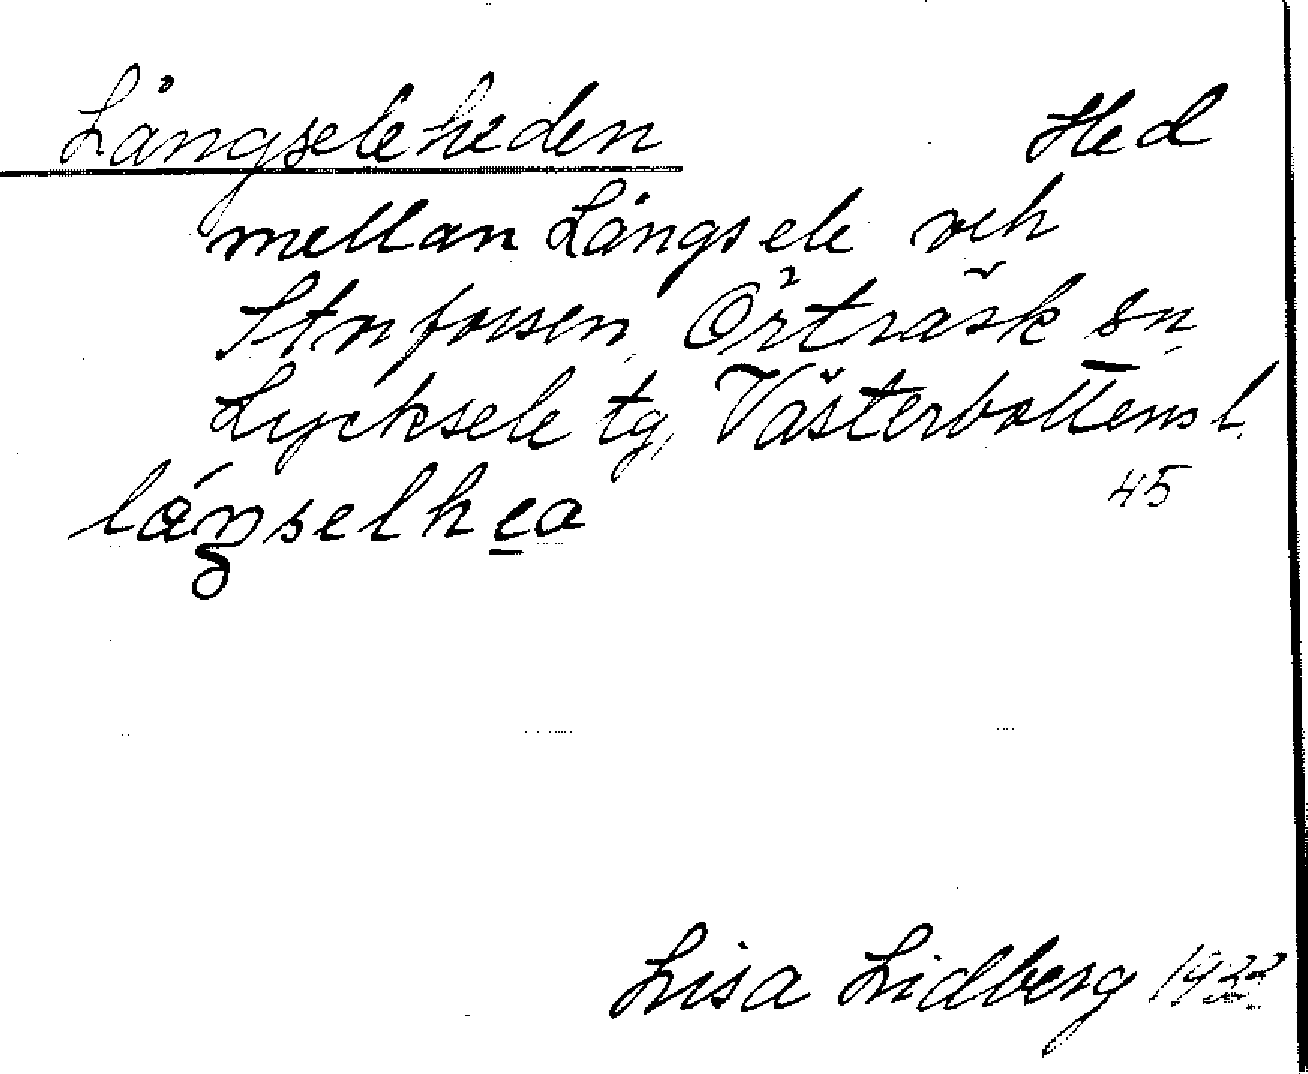 Långseleheden Hed
mellan Långsele och
Storforsen, Örträsk sn,
Lycksele tg, Västerbottens l.
45
Lisa Lidberg 1933